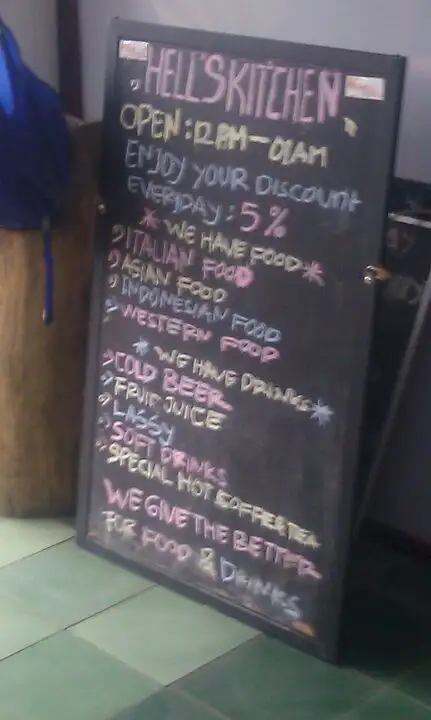 HELL'S KITCHEN
OPEN : 12 PM - 01 AM
ENJOY YOUR DISCOUNT
EVERYDAY : 5 %
* WE HAVE FOOD *
ITALIAN FOOD
ASIAN FOOD
INDONESIAN FOOD
WESTERN FOOD
* WE HAVE DRINKS *
COLD BEER
FRUIT JUICE
LASSY
SOFT DRINKS
SPECIAL HOT COFFEE & TEA
WE GIVE THE BETTER
FOR FOOD & DRINKS